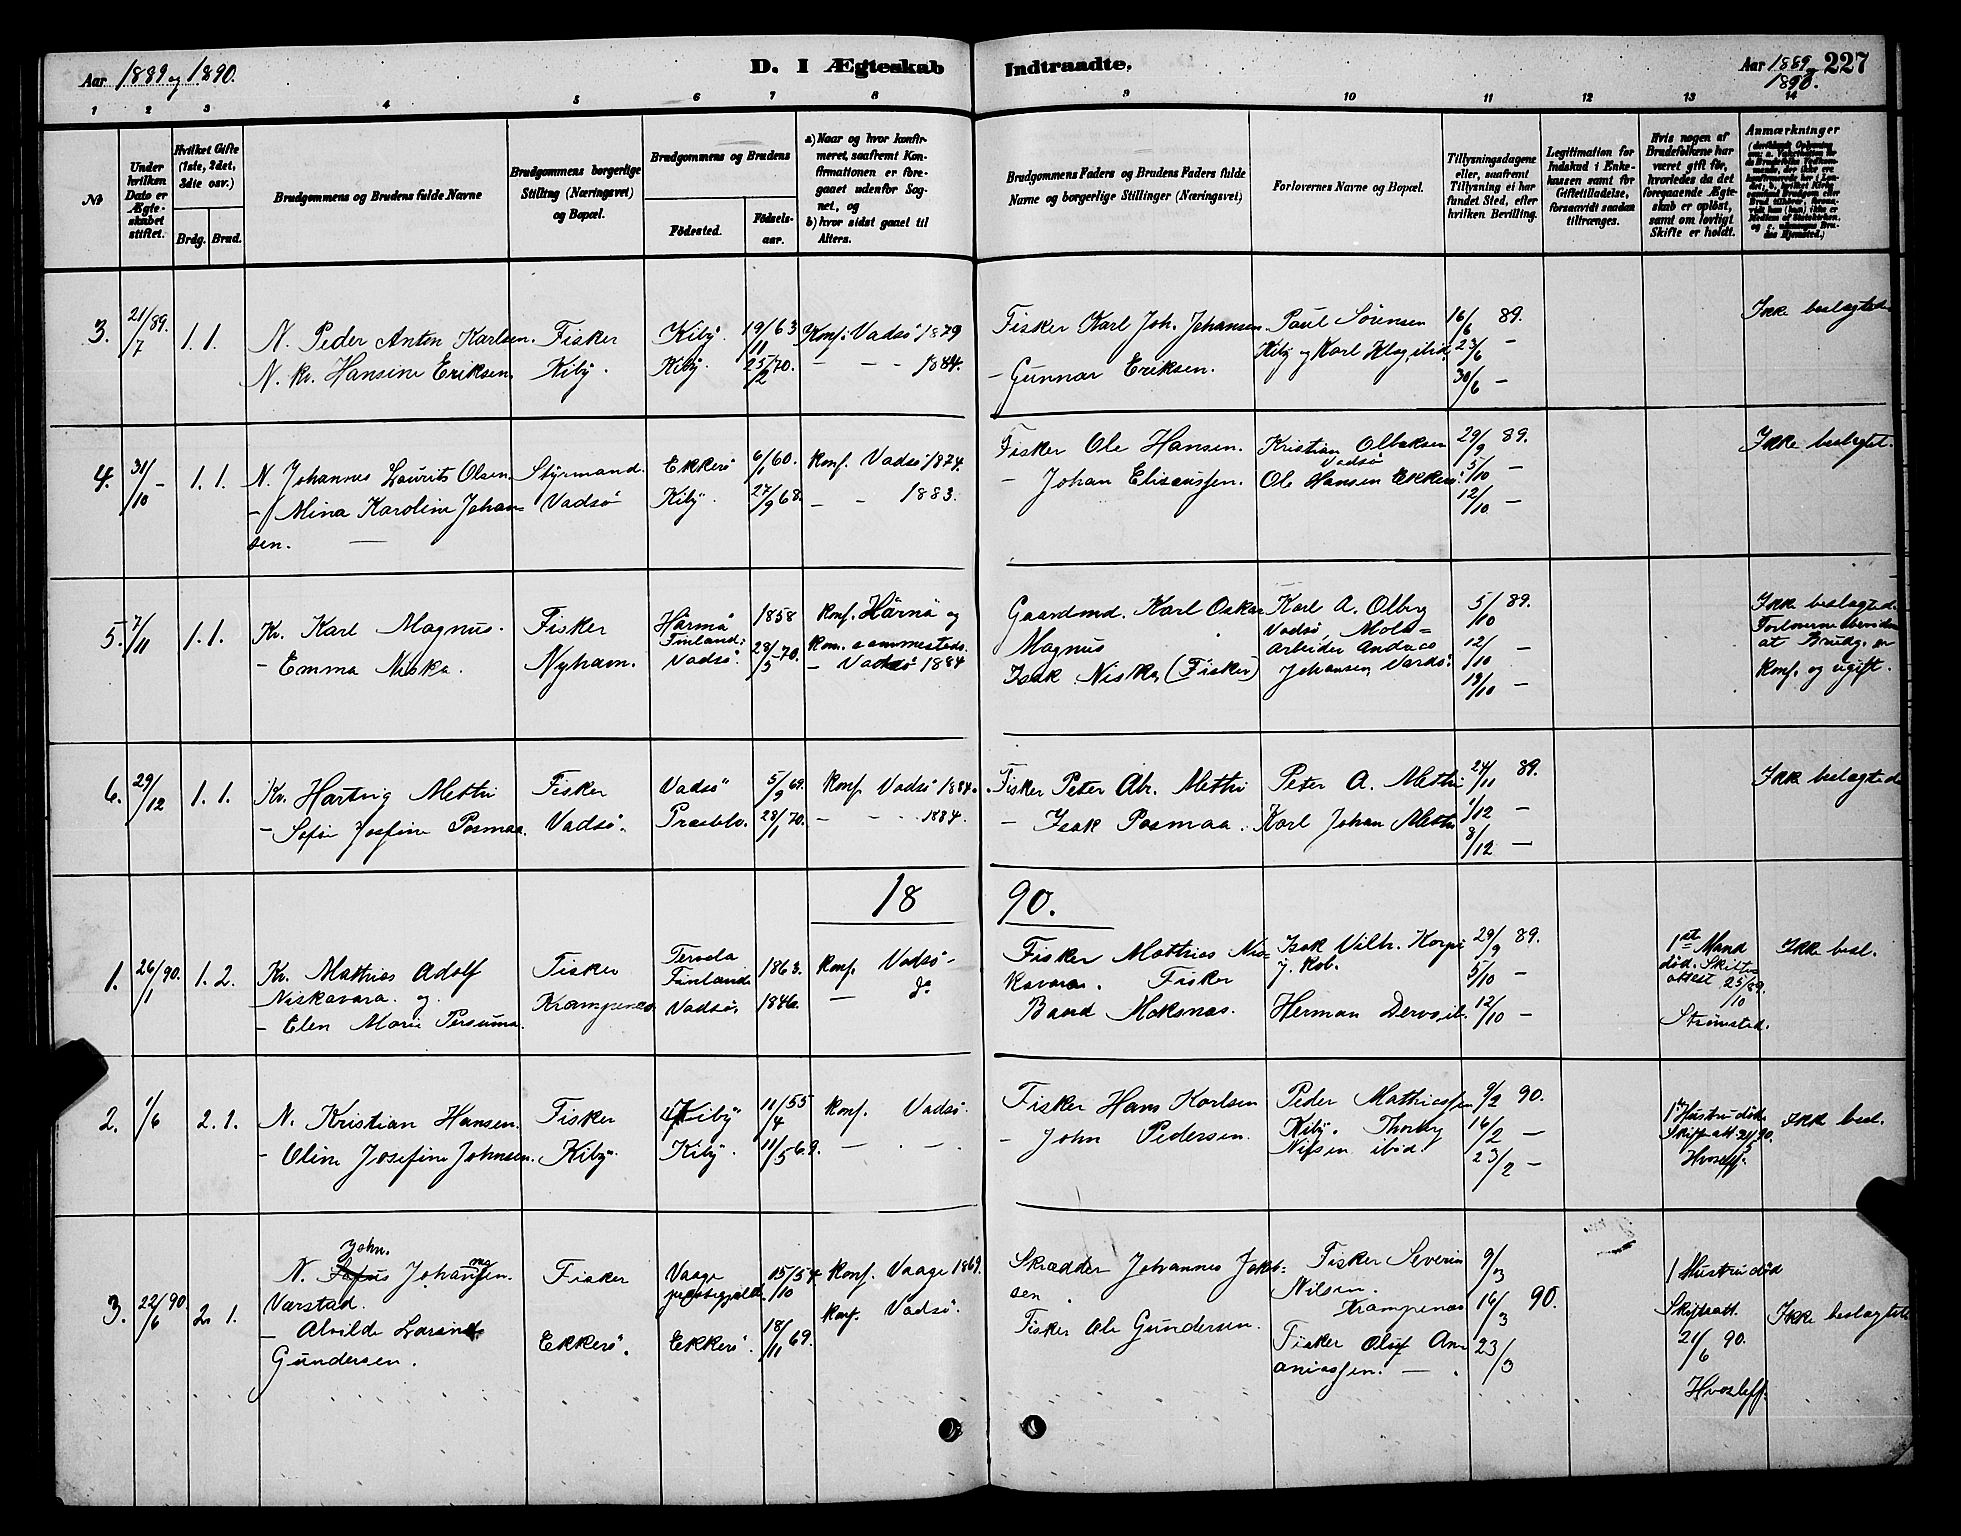 Aar 1889 og 1890.
D. I Ægteskab Indtraadte.
Aar 1889 og 1890. 227
1 2 3 4 5 6 7 8 9 10 11 12 13 14
No
Under hvilken Dato er Ægteskabet stiftet.
Hvilket Gifte (1ste, 2det, 3die osv.)
Brdg. Brud.
Brudgommens og Brudens fulde Navne
Brudgommens borgerlige Stilling (Næringsvei) og Bopæl.
Brudgommens og Brudens
Fødested. Fødselsaar.
a) Naar og hvor konfirmeret, saafremt Konfirmationen er foregaaet udenfor Sognet, og
b) hvor sidst gaaet til Alters.
Brudgommens Faders og Brudens Faders fulde Navne og borgerlige Stillinger (Næringsvei)
Forlovernes Navne og Bopæl.
Tillysningsdagene eller, saafremt Tillysning ei har fundet Sted, efter hvilken Bevilling.
Legitimation for Indskud i Enkekassen samt for Giftetilladelse, forsaavidt saadan tiltrænges.
Hvis nogen af Brudefolkene har været gift før, hvorledes da det foregaaende Ægteskab er opløst, samt om lovligt Skifte er holdt.
Anmærkninger
3. 21/7 89. 1. 1. N. Peder Anton Karlsen. Fisker Kiby. 19/11 63 Konf. Vadsö 1879 Fisker Karl Joh. Johansen Paul Sörensen 16/6 89. Ikke beslagtede
N. kv. Hansine Eriksen. Kiby. Kiby. 25/2 70. — — - 1884. - Gunnar Eriksen. Kiby og Karl ibid. 23/6 —
30/6 —
4. 31/10 - 1. 1. N. Johannes Laurits Olsen. Styrmand. Ekkerö 6/1 60. Konf. Vadsö 1874. Fisker Ole Hansen. Kristian Olbaksen Vadsö 29/9 89. Ikke beslagtet.
- Mina Karoline Johansen. — Vadsö Kiby. 27/9 68. — - 1883. - Johan Eliseussen. Ole Hansen Ekkerö. 5/10 —
12/10 —
5. 7/11 1. 1. Kv. Karl Magnus. Fisker Finland: 1858 Konf. og Gaardmd. Karl Oskar Magnus Karl A. Olberg Vadsö, 5/10 89. Ikke beslagtede
- Emma Niska. Nyhavn. Vadsö. 28/5 70. kom. sammesteds. - Vadsö 1884 Isak Niska (Fisker) arbeider Andreas Johansen Vardö. 12/10 — at Brudg. er
19/10 — konf. og ugift.
6. 29/12 1. 1. Kv. Hartvig Mettri Fisker Vadsö 5/9 69. Konf. Vadsö 1884. Fisker Peter Abr. Mettri Peter A. Mettri 24/11 89. Ikke beslagtede
- Sofie Josefine Posmaa. Vadsö. Præstelv. 28/1 70. — - - 1884. - Isak Posmaa. Karl Johan Mettri 1/12 —
8/12 —
18 90.
1. 26/1 90. 1. 2. Kv. Mathias Adolf Niskavara. og Fisker Finland 1863. Konf. Vadsö. Fisker Mathias Niskavara. Fisker Isak Vilh. Korpi 29/9 89. 1ste Mand död. Ikke besl.
- Elen Marie Persuma. Krampenes Vadsö. 1846. — do Baard Moksnas. Herman 5/10 — attest 25/10 89.
12/10 —
2. 1/6 2. 1. N. Kristian Hansen. Fisker Kiby 11/4 55 Konf. Vadsö. Fisker Hans Karlsen Peder Mathiassen 9/2 90. 1ste Hustru död. Ikke besl.
- Oline Josefine Johnsen. Kiby. Kiby. 11/5 69. — - — - John Pedersen. Kiby. Nilsen ibid. 16/2 — Skifteatt. 90.
23/2 — Hvoslef.
3. 22/6 90. 2. 1. N. John. Johannesen. Varstad. Fisker Vaage præstegjeld. 15/10 54 Konf. Vaage 1869. Skrædder Johannes Jakobsen. Fisker Severin Nilsen. Krampenes 9/3 1 Hustru död Ikke beslagtede
- Alvilde Larsine Gundersen. Ekkerö. Ekkerö. 18/11 69. Konf. Vadsö. Fisker Ole Gundersen. Fisker Oluf Ananiassen. — 16/3 90. Skifteatt. 21/6 90.
23/3 Hvoslef.